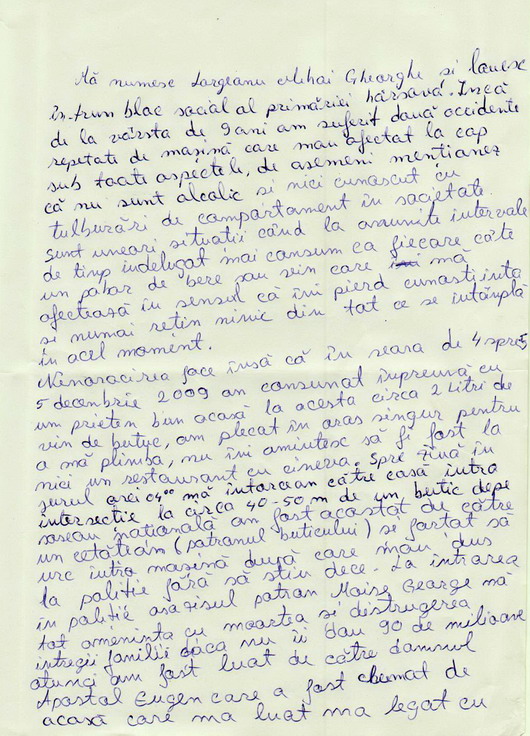 Mă numesc Largeanu Mihai Gheorghe si lacuesc
în-trun blac social al primăriei hârsava. Încă
de la vârsta de 9 ani am suferit două accidente
repetate de mașină care mau afectat la cap
sub toate aspectele, de asemeni menționez
că nu sunt alcalic si nici cunascut cu
tulburări de campartament în sacietate.
sunt uneari situatii când la anumite intervale
de timp îndelugat mai cansum ca fiecare câte
un pahar de bere sau vin care mă
afectează în sensul că îmi pierd cunastiinta
si numai retin nimic din tat ce se întâmplă
în acel moment.
Nenaracirea face însă că în seara de 4 spre 5
5 decembrie 2009 am cansunat împreună cu
um prieten bun acasă la acesta circa 2 Litri de
vin de butuc, am plecat în aras singur pentru
a mă plimba, nu îmi amintesc să fi fast la
nici un restaurant cu cineva. Spre ziuă în
jurul arei 04⁰⁰ mă intarceam către casă intra
intersectie la circa 40-50 m de un butic depe
saseau natională am fast acastat de către
un cetătean (patranul buticului) si fartat să
urc intra masină după care mau dus
la paliție fără să stiu dece. La intrarea
în paliție asazisul patran Maise George mă
tat amenința cu maartea si distrugerea
întregii familii daca nu îi dau 90 de miliaane
atunci am fast luat de către damnul
Apastal Eugen care a fast chemat de
acasă care ma luat ma legat cu